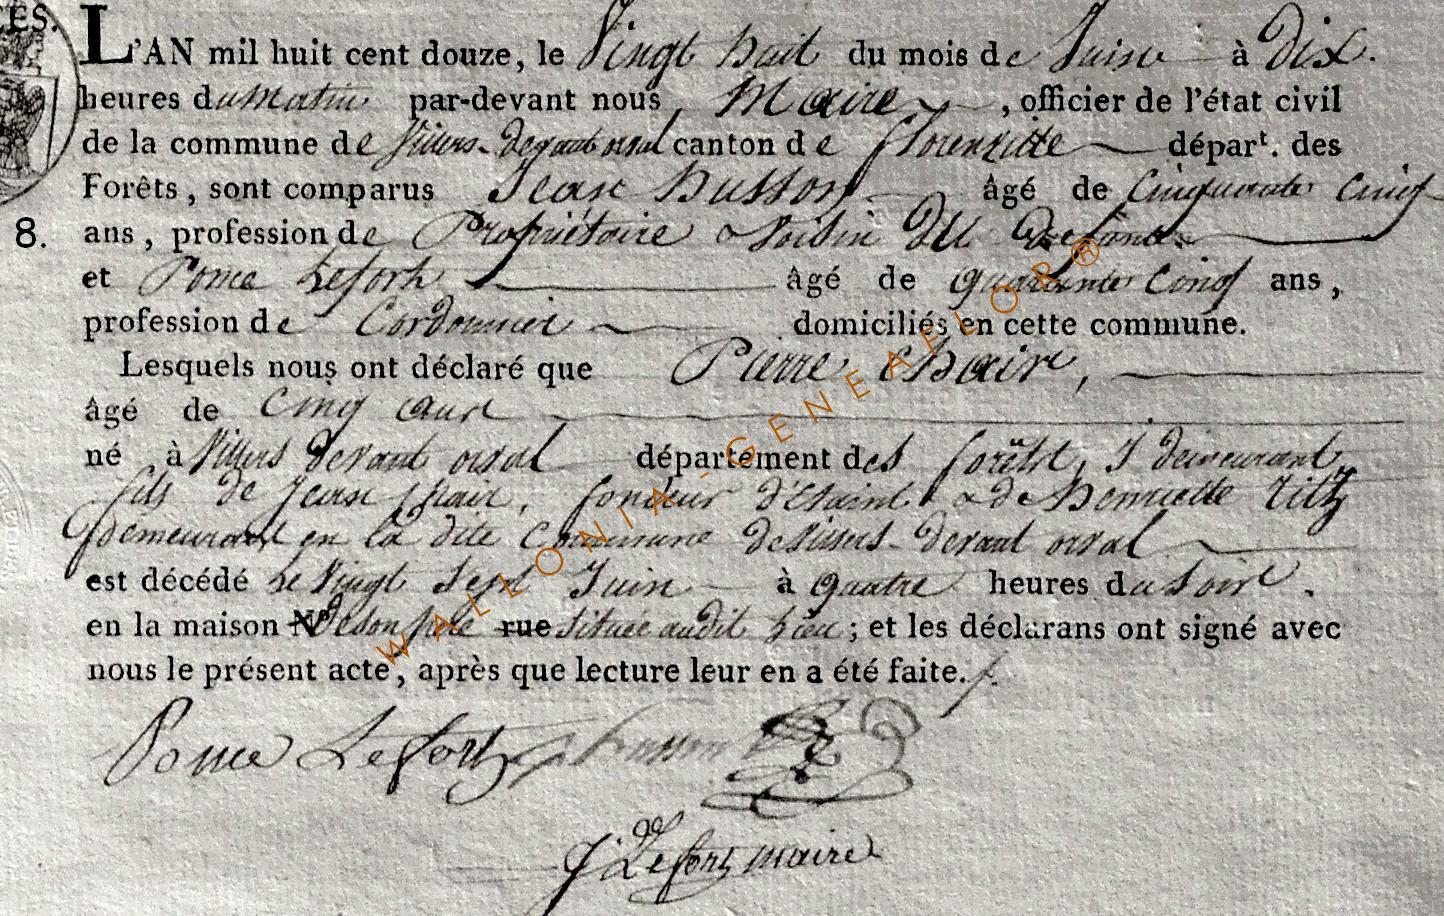 CES.
L'AN mil huit cent douze, le Vingt huit du mois de Juin à Dix.
heures du Matin par-devant nous, Maire, officier de l'état civil
de la commune de Villers-devant orval canton de florenville départ. des
Forêts, sont comparus Jean husson âgé de Cinquante Cinq
8. ans, profession de Propriétaire & Voisin du
et Ponce Lefort âgé de quarante Cinq ans,
profession de Cordonnier domiciliés en cette commune.
Lesquels nous ont déclaré que Pierre,
âgé de Cinq ans
né à Villers devant orval département des forêts, y demeurant
fils de Jean, fondeur d'Etaint, & de henriette
demeurant en la dite Commune de Villers-devant orval
est décédé le Vingt Sept Juin à quatre heures du Soir.
en la maison N° de son père rue située audit lieu; et les déclarans ont signé avec
nous le présent acte, après que lecture leur en a été faite./.
Ponce Lefort husson
J Lefort maire
WALLONIA-GENEAFLOR®